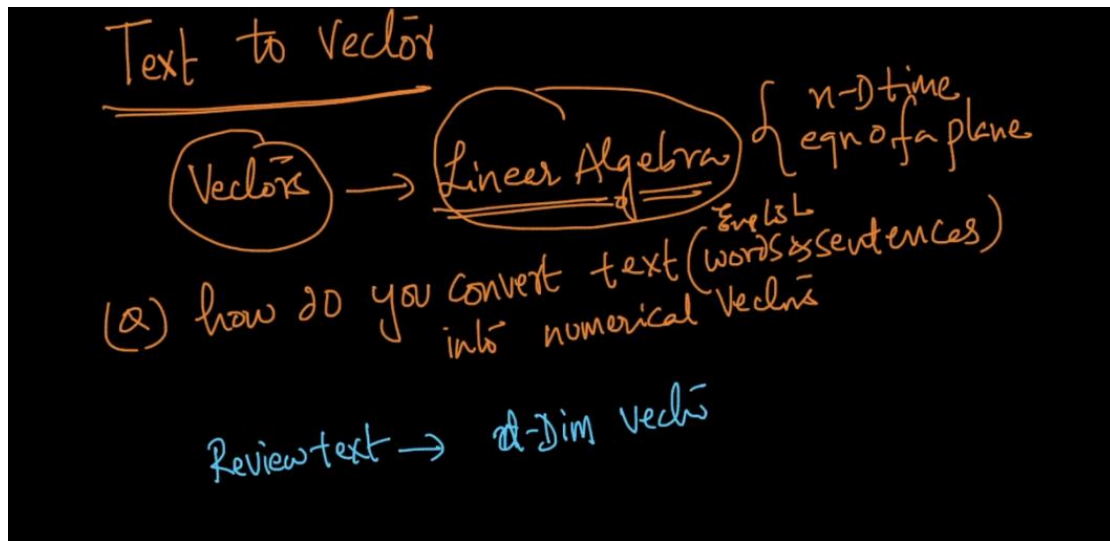 Text to Vector
Vectors → Linear Algebra { n-D time
eqn of a plane
(Q) how do you convert text (English words & sentences)
into numerical Vectors
Review text → d-Dim vector